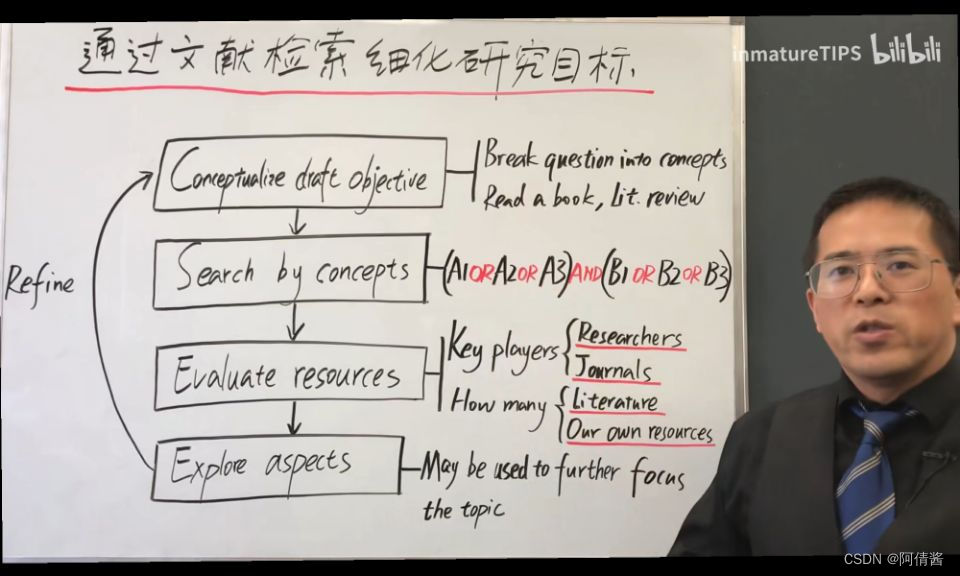 通过文献检索细化研究目标
inmatureTIPS bilibili
Conceptualize draft objective
Break question into concepts
Read a book, Lit. review
Search by concepts
(A1 OR A2 OR A3) AND (B1 OR B2 OR B3)
Refine
Evaluate resources
Key players { Researchers
Journals
How many { Literature
Our own resources
Explore aspects
May be used to further focus
the topic
CSDN @阿倩酱